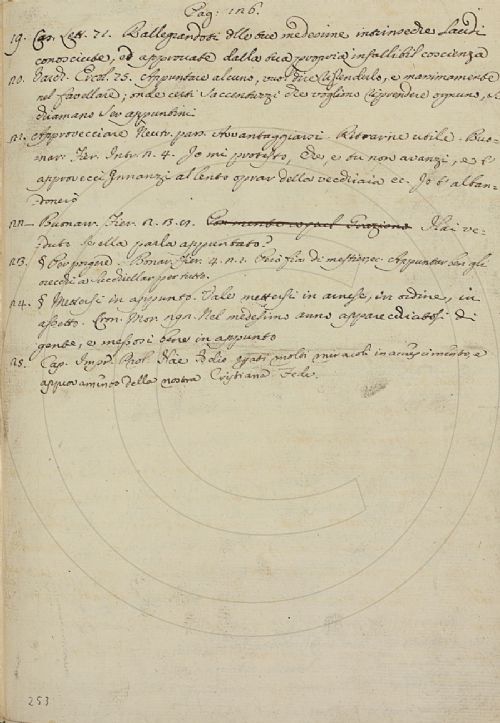 Pag: 126.
19. Car. Lett. 71. Rallegrandoti delle tue medesime intrinseche laudi
conosciute, ed approvate dalla tua propria infallibil coscienza
20. Varch. Ercol. 25. Appuntare alcuno, vuol dire riprenderlo, e massimamente
nel favellare; onde certi saccentuzzi che vogliono riprendere ognuno, si
chiamano Ser appuntini
21. Approvecciare Neutr. pass. Avvantaggiarsi. Ritrarne utile. Buo-
nar. Fier. Intr. 2. 4. Io mi protesto, che, e tu non avanzi, e t'
approvecci Innanzi al lento oprar della vecchiaia ec. Io t' abban-
dono
22. Buonarr. Fier. 2. 3. Hai ve-
duto s'ella parla appuntato?
23. § Per porgere. Bonar. Fier. 4. 2. 1. Appuntar gli
orecchi per tutto.
24. § Mettersi in appunto. Vale mettersi in arnese, in ordine, in
assetto. Cron. Mor. Nel medesimo anno apparecchiatosi di
gente, e messosi bene in appunto
25. Cap. Impr. Prol. Iddio molti miracoli in accrescimento, e
appro della nostra Cristiana Fede.
253